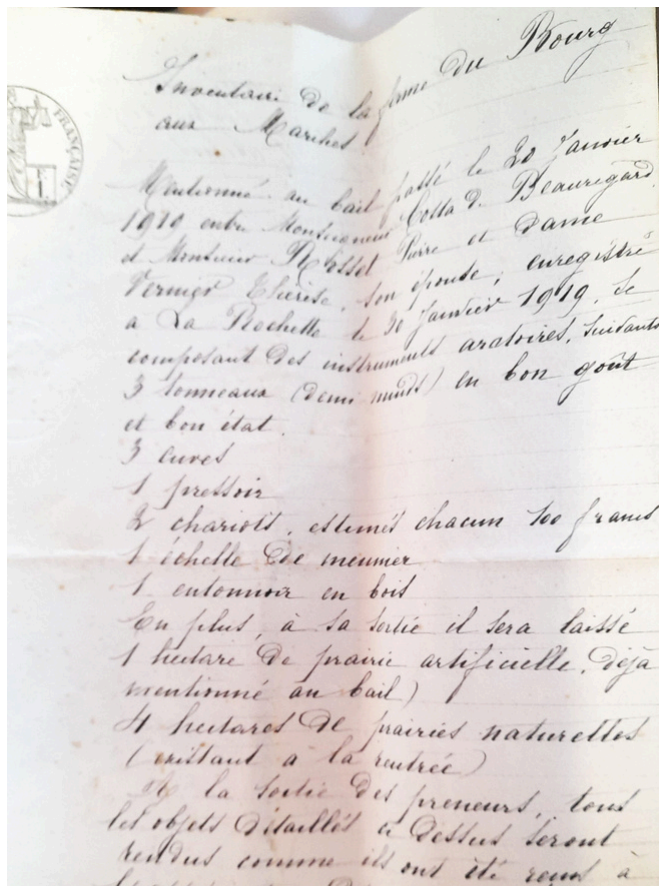 FRANÇAISE
Inventaire de la ferme du Bourg
aux Marches
Mentionné au bail passé le 20 Janvier
1919 entre Monseigneur Costa de Beauregard
et Monsieur Rosset Pierre et Dame
Vernier Thérèse, son épouse, enregistré
a La Rochette le 30 Janvier 1919, se
composant des instruments aratoires, suivants
3 tonneaux (demi muids) en bon goût
et bon état.
3 cuves
1 pressoir
2 chariots, estimés chacun 100 francs
1 échelle de meunier
1 entonnoir en bois
En plus, à sa sortie il sera laissé
1 hectare de prairie artificielle, déjà
mentionné au bail)
4 hectares de prairies naturelles
(existant a la rentrée)
A la sortie des preneurs, tous
les objets détaillés ci dessus seront
rendus comme ils ont été reçus à